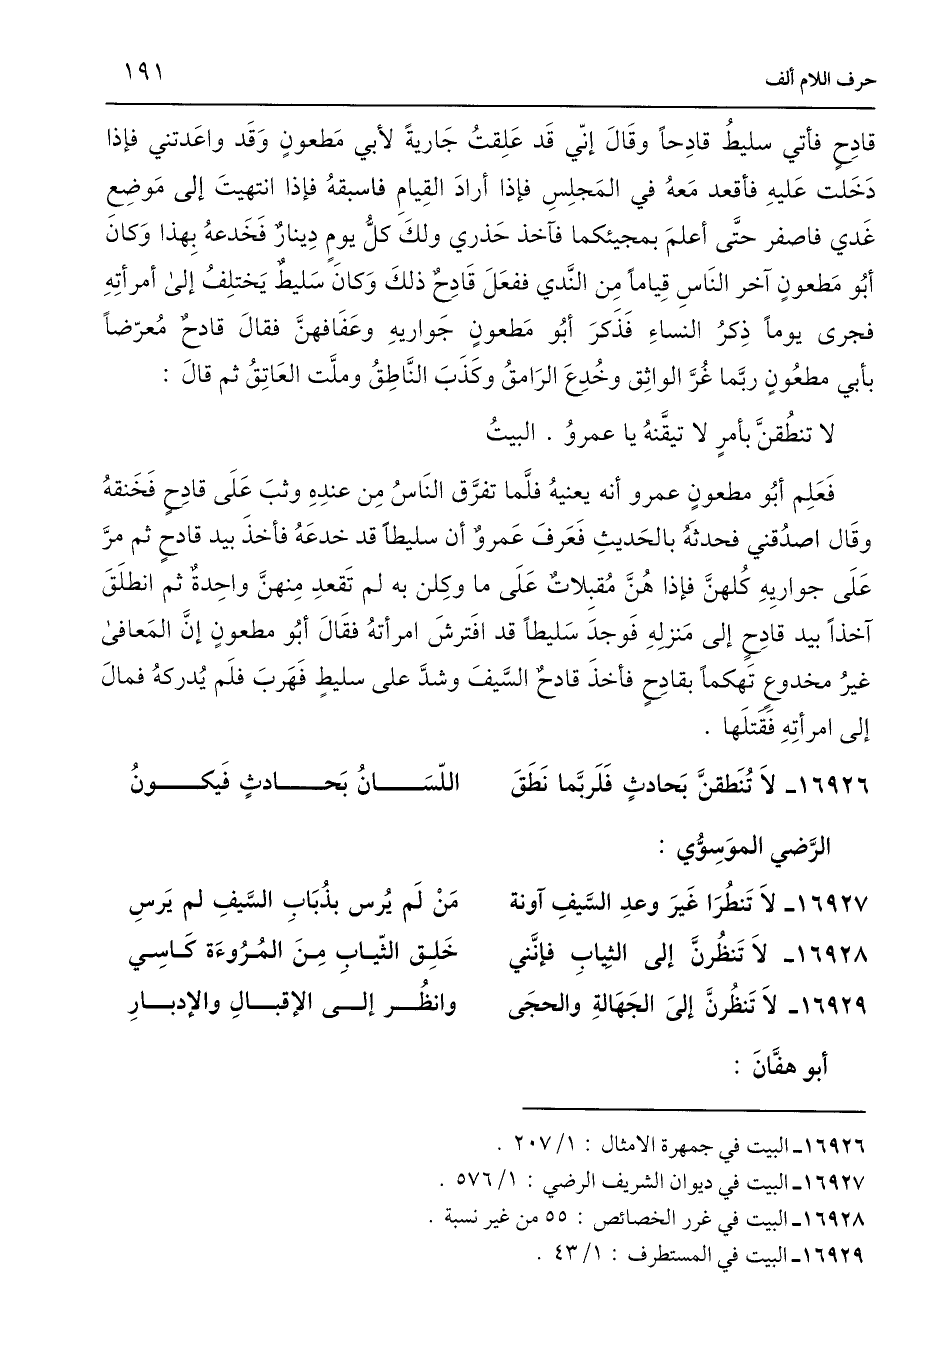 حرف اللام ألف ١٩١
قادِحٍ فأتي سليطُ قادِحاً وقَالَ إنّي قَد عَلِقتُ جَاريةً لأبي مَطعونٍ وَقَد واعَدتني فإذا
دَخَلت عَليهِ فأقعد مَعهُ في المَجلِسِ فإذا أرادَ القِيام فاسبقهُ فإذا انتهيتَ إلى مَوضِع
غَدي فاصفر حتَّى أعلمَ بمجيئكما فآخذ حَذري ولكَ كلُّ يومٍ دِينارٌ فَخَدعهُ بِهذا وَكانَ
أبُو مَطعونٍ آخر النَاسِ قِياماً مِن النَّدي ففعَلَ قَادِحٌ ذلكَ وَكانَ سَليطٌ يَختلِفُ إلىٰ أمرأتِهِ
فجرى يوماً ذِكرُ النساءِ فَذَكرَ أبُو مَطعونٍ جَواريهِ وعَفَافهنَّ فقالَ قادحٌ مُعرّضاً
بأبي مطعُونٍ ربَّما غُرَّ الواثِق وخُدِعَ الرَامقُ وكَذَبَ النَّاطِقُ وملَّت العَاتِقُ ثم قالَ :
لا تنطُقنَّ بأمرٍ لا تيقَّنهُ يا عمروُ . البيتُ
فَعَلِم أبُو مطعونٍ عمرو أنه يعنيهُ فلَّما تفرَّق النَاسُ مِن عندِهِ وثبَ عَلَى قادِحٍ فَخَنقهُ
وقَال اصدُقني فحدثهُ بالحَديثِ فَعَرفَ عَمروٌ أن سليطاً قد خدعَهُ فأخذَ بيد قادحٍ ثم مرَّ
عَلَى جواريهِ كُلهنَّ فإذا هُنَّ مُقبلاتٌ عَلَى ما وكِلن به لم تَقعدِ مِنهنَّ واحِدةٌ ثم انطلَقَ
آخذاً بيد قادِحٍ إلى مَنزلِهِ فَوجدَ سَليطاً قد افترشَ امرأتهُ فقالَ أبُو مطعون إنَّ المَعافىٰ
غيرُ مخدوعٍ تَهكماً بقادِحٍ فأخذَ قادحٌ السَّيفَ وشدَّ على سليطٍ فَهَربَ فلَم يُدركهُ فمالَ
إلى امرأتِهِ فَقَتلَها .
١٦٩٢٦ـ لاَ تُنَطقنَّ بَحادثٍ فَلَربَّما نَطَقَ اللّسَـــانُ بَحـــادثٍ فَيكـــونُ
الرَّضي الموَسِوُّي :
١٦٩٢٧ـ لاَ تَنطُرَا غَيرَ وعدِ السَّيفِ آونة مَنْ لَم يُرس بذُبَابِ السَّيفِ لم يَرسِ
١٦٩٢٨ـ لاَ تَنظُرنَّ إلى الثِيابِ فإنَّني خَلِـق الثّيـابِ مِـنَ المُـرُوءَة كَـاسِي
١٦٩٢٩ـ لاَ تَنظُرنَّ إلىَ الجَهَالةِ والحجَى وانظُـــر إلـــى الإقبـــالِ والإدبـــارِ
أبو هفَّانَ :
١٦٩٢٦ـ البيت في جمهرة الامثال : ١/ ٢٠٧ .
١٦٩٢٧ـ البيت في ديوان الشريف الرضي : ١/ ٥٧٦ .
١٦٩٢٨ـ البيت في غرر الخصائص : ٥٥ من غير نسبة .
١٦٩٢٩ـ البيت في المستطرف : ١/ ٤٣ .